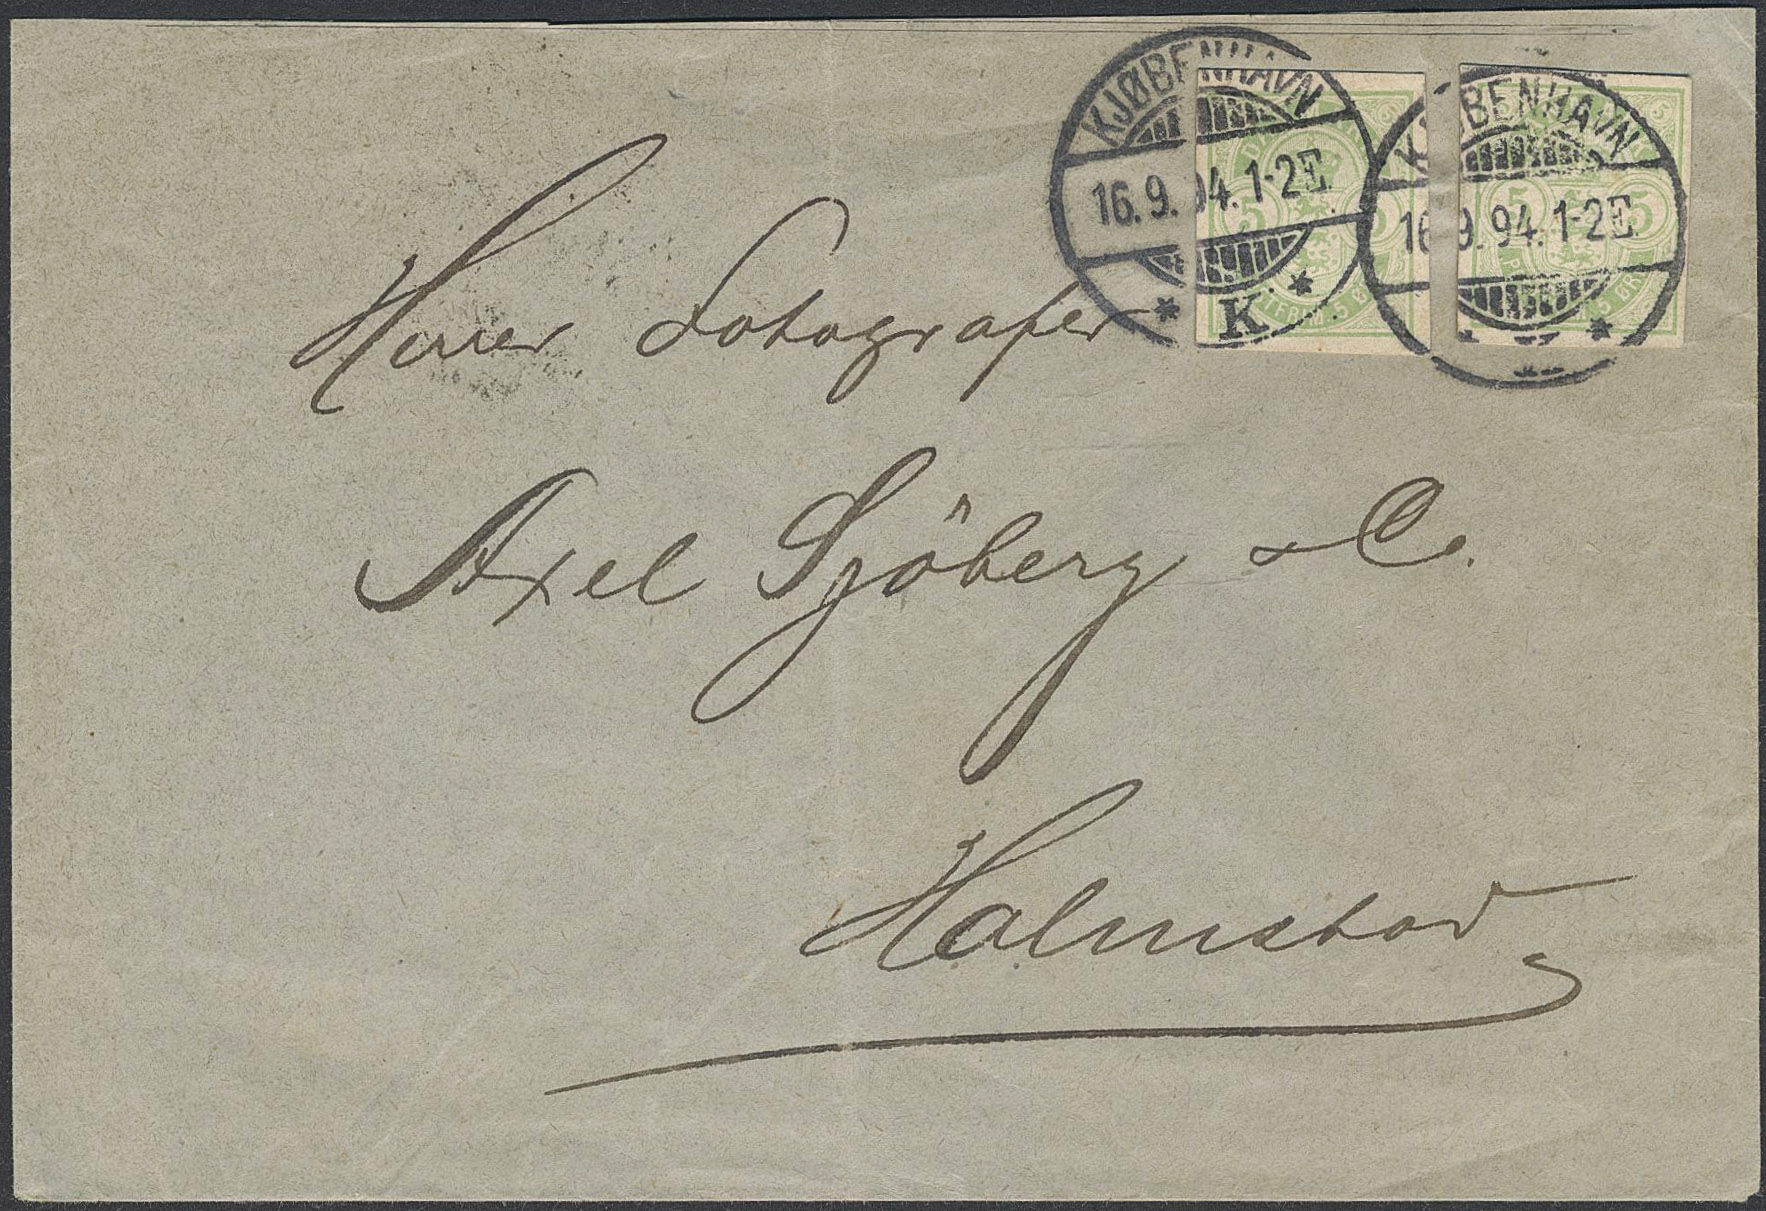 KJØBENHAVN
16.9.94.1-2E.
* K *
KJØBENHAVN
16.9.94.1-2E.
5 5
5 5
Herrer Fotografer
Axel Sjöberg & Co.
Halmstad